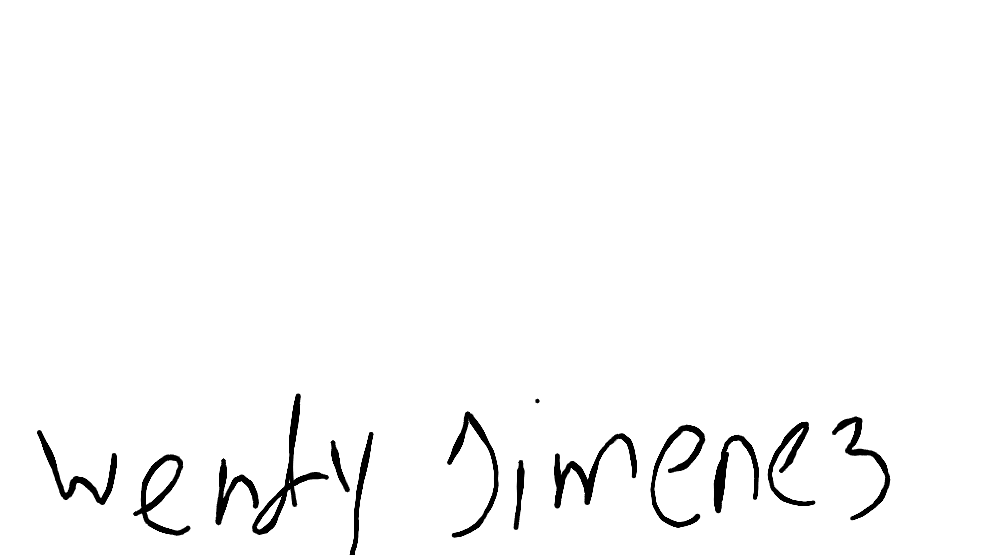 wendy Jimenez